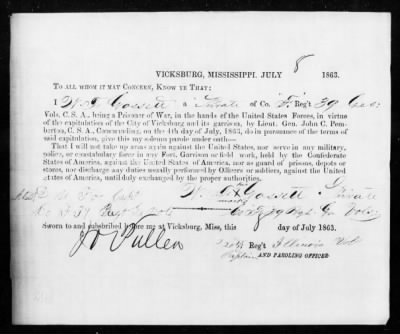 VICKSBURG, MISSISSIPPI. JULY 8 1863.
TO ALL WHOM IT MAY CONCERN, KNOW YE THAT:
I W T Gossett a Private of Co. F. Reg't 39 Geo:
Vols. C. S. A., being a Prisoner of War, in the hands of the United States Forces, in virtue
of the capitulation of the City of Vicksburg and its garrison, by Lieut. Gen. John C. Pem-
berton, C. S. A., Commanding, on the 4th day of July, 1863, do in pursuance of the terms of
said capitulation, give this my solemn parole under oath—
That I will not take up arms again against the United States, nor serve in any military,
police, or constabulary force in any Fort, Garrison or field work, held by the Confederate
States of America, against the United States of America, nor as guard of prisons, depots or
stores, nor discharge any duties usually performed by Officers or soldiers, against the United
States of America, until duly exchanged by the proper authorities.
W T X Gossett Private
mark
Co F 39 Regt Ga Vols.
Sworn to and subscribed before me at Vicksburg, Miss., this day of July 1863.
J O Pullen
20th Reg't Illinois Vols
Captain AND PAROLING OFFICER